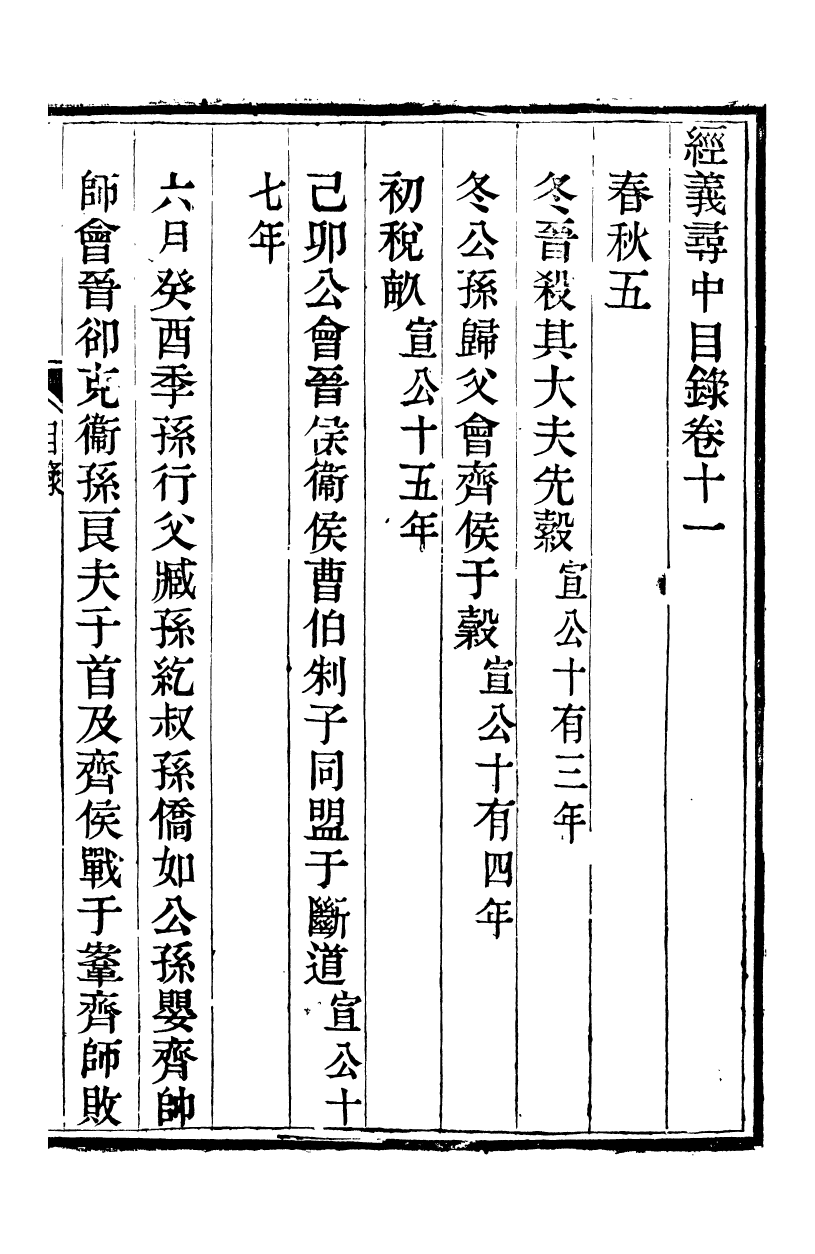 經義尋中目錄卷十一
春秋五
冬晉殺其大夫先縠宣公十有三年
冬公孫歸父會齊侯于穀宣公十有四年
初稅畝宣公十五年
己卯公會晉侯衞侯曹伯邾子同盟于斷道宣公十
七年
六月癸酉季孫行父臧孫紇叔孫僑如公孫嬰齊帥
師會晉卻克衞孫良夫于首及齊侯戰于鞌齊師敗
目錄